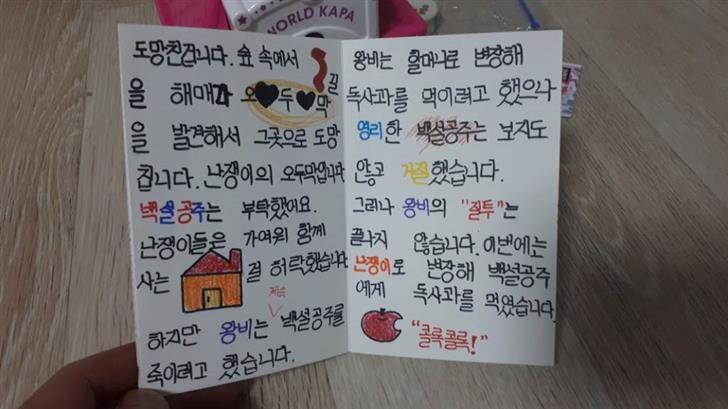 NORLD KAPA
도망친겁니다. 숲 속에서 길
을 해매다 오♥두♥막
을 발견해서 그곳으로 도망
칩니다. 난쟁이의 오두막입니다
백설공주는 부탁했어요.
난쟁이들은 가여워 함께
사는 걸 허락했습니다
하지만 왕비는 계속 백설공주를
죽이려고 했습니다.
왕비는 할머니로 변장해
독사과를 먹이려고 했으나
영리한 백설공주는 보지도
않고 거절했습니다.
그러나 왕비의 "질투"는
끝나지 않습니다. 이번에는
난쟁이로 변장해 백설공주
에게 독사과를 먹였습니다.
"콜록콜록!"